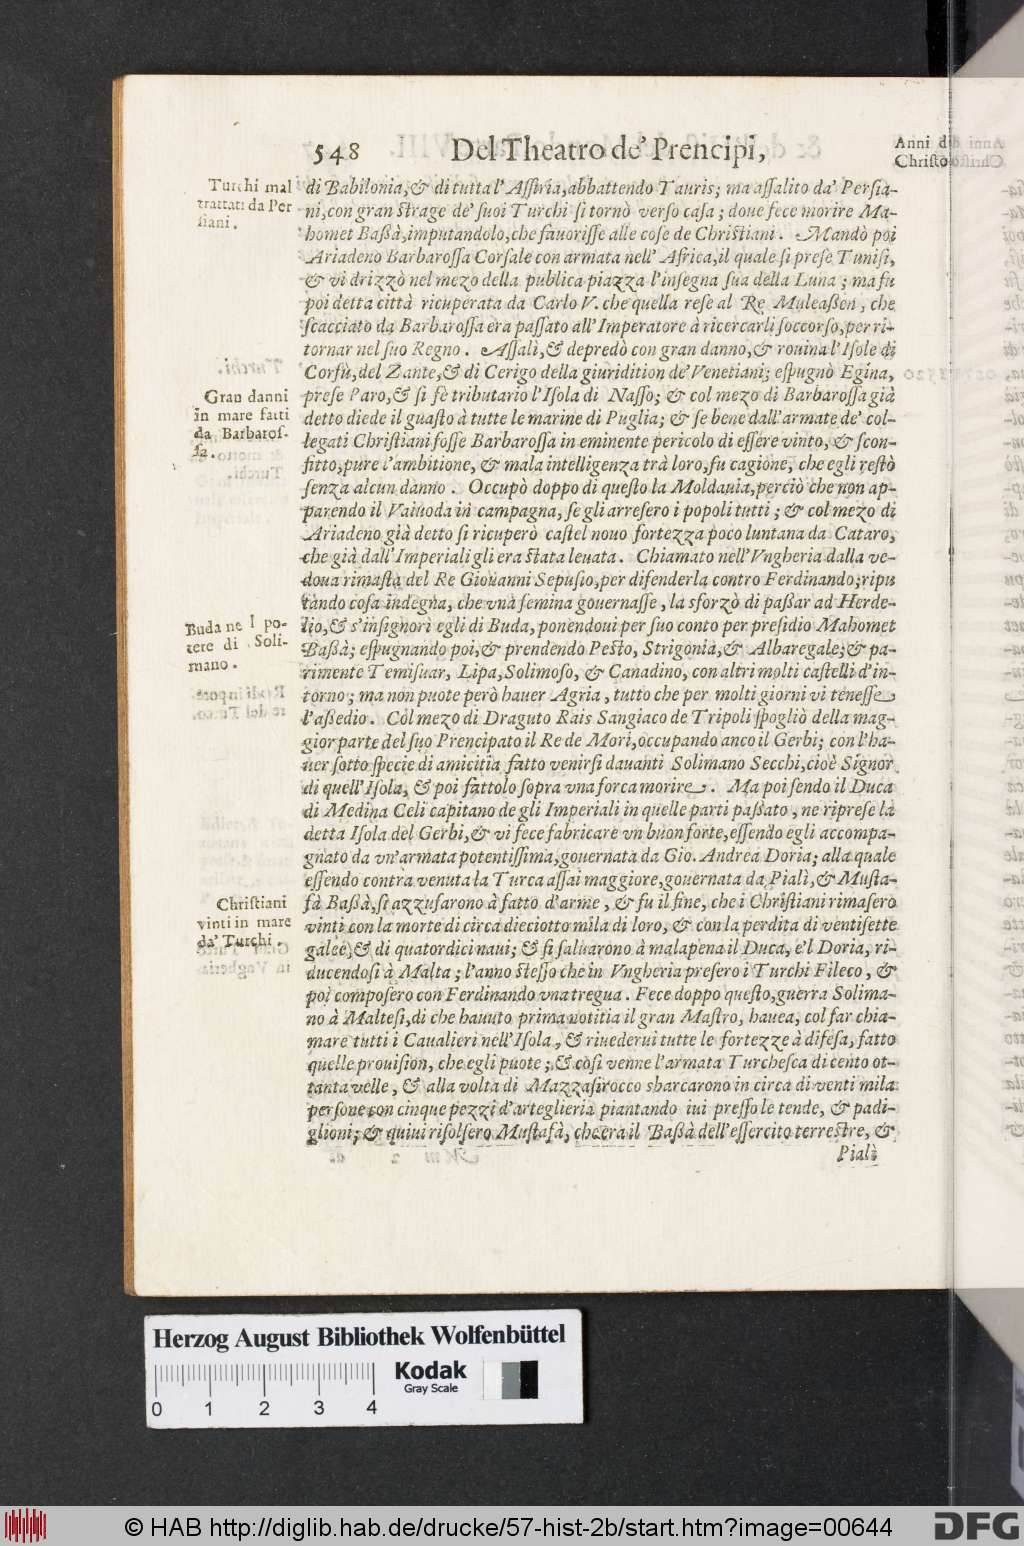 548 Del Theatro de' Prencipi,
Anni di
Christo
Turchi mal
trattati da Per
siani.
di Babilonia, & di tutta l'Assiria, abbattendo Tauris; ma assalito da' Persia-
ni, con gran strage de' suoi Turchi si tornò verso casa; doue fece morire Ma-
homet Baßà, imputandolo, che fauorisse alle cose de Christiani. Mandò poi
Ariadeno Barbarossa Corsale con armata nell'Africa, il quale si prese Tunisi,
& vi drizzò nel mezo della publica piazza l'insegna sua della Luna; ma fu
poi detta città ricuperata da Carlo V. che quella rese al Re Muleaßen, che
scacciato da Barbarossa era passato all'Imperatore à ricercarli soccorso, per ri-
tornar nel suo Regno. Assalì, & depredò con gran danno, & rouina l'Isole di
Corfù, del Zante, & di Cerigo della giuridition de' Venetiani; espugnò Egina,
Gran danni
in mare fatti
da Barbaros-
sa.
prese Paro, & si fè tributario l'Isola di Nasso; & col mezo di Barbarossa già
detto diede il guasto à tutte le marine di Puglia; & se bene dall'armate de' col-
legati Christiani fosse Barbarossa in eminente pericolo di essere vinto, & scon-
fitto, pure l'ambitione, & mala intelligenza trà loro, fu cagione, che egli restò
senza alcun danno. Occupò doppo di questo la Moldauia, perciò che non ap-
parendo il Vaiuoda in campagna, se gli arresero i popoli tutti; & col mezo di
Ariadeno già detto si ricuperò castel nouo fortezza poco luntana da Cataro,
che già dall'Imperiali gli era stata leuata. Chiamato nell'Vngheria dalla ve-
doua rimasta del Re Giouanni Sepusio, per difenderla contro Ferdinando; ripu
tando cosa indegna, che vna femina gouernasse, la sforzò di paßar ad Herde-
Buda nel po-
tere di Soli-
mano.
lio, & s'insignorì egli di Buda, ponendoui per suo conto per presidio Mahomet
Baßà; espugnando poi, & prendendo Pesto, Strigonia, & Albaregale; & pa-
rimente Temisuar, Lipa, Solimoso, & Canadino, con altri molti castelli d'in-
torno; ma non puote però hauer Agria, tutto che per molti giorni vi tenesse
l'aßedio. Col mezo di Draguto Rais Sangiaco de Tripoli spogliò della mag-
gior parte del suo Prencipato il Re de Mori, occupando anco il Gerbi; con l'ha-
uer sotto specie di amicitia fatto venirsi dauanti Solimano Secchi, cioè Signor
di quell'Isola, & poi fattolo sopra vna forca morire. Ma poi sendo il Duca
di Medina Celi capitano de gli Imperiali in quelle parti paßato, ne riprese la
detta Isola del Gerbi, & vi fece fabricare vn buon forte, essendo egli accompa-
gnato da vn'armata potentissima, gouernata da Gio. Andrea Doria; alla quale
essendo contra venuta la Turca assai maggiore, gouernata da Pialì, & Musta-
Christiani
vinti in mare
da' Turchi.
fà Baßà, si azzufarono à fatto d'arme, & fu il fine, che i Christiani rimasero
vinti con la morte di circa dieciotto mila di loro, & con la perdita di ventisette
galee, & di quatordici naui; & si saluarono à malapena il Duca, e'l Doria, ri-
ducendosi à Malta; l'anno stesso che in Vngheria presero i Turchi Fileco, &
poi composero con Ferdinando vna tregua. Fece doppo questo, guerra Solima-
no à Maltesi, di che hauuto prima notitia il gran Mastro, hauea, col far chia-
mare tutti i Caualieri nell'Isola, & riuederui tutte le fortezze à difesa, fatto
quelle prouision, che egli puote; & così venne l'armata Turchesca di cento ot-
tanta velle, & alla volta di Mazzasirocco sbarcarono in circa di venti mila
persone con cinque pezzi d'arteglieria piantando iui presso le tende, & padi-
glioni; & quiui risolsero Mustafà, che era il Baßà dell'essercito terrestre, &
Pialì
Herzog August Bibliothek Wolfenbüttel
Kodak
Gray Scale
0 1 2 3 4
© HAB http://diglib.hab.de/drucke/57-hist-2b/start.htm?image=00644
DFG